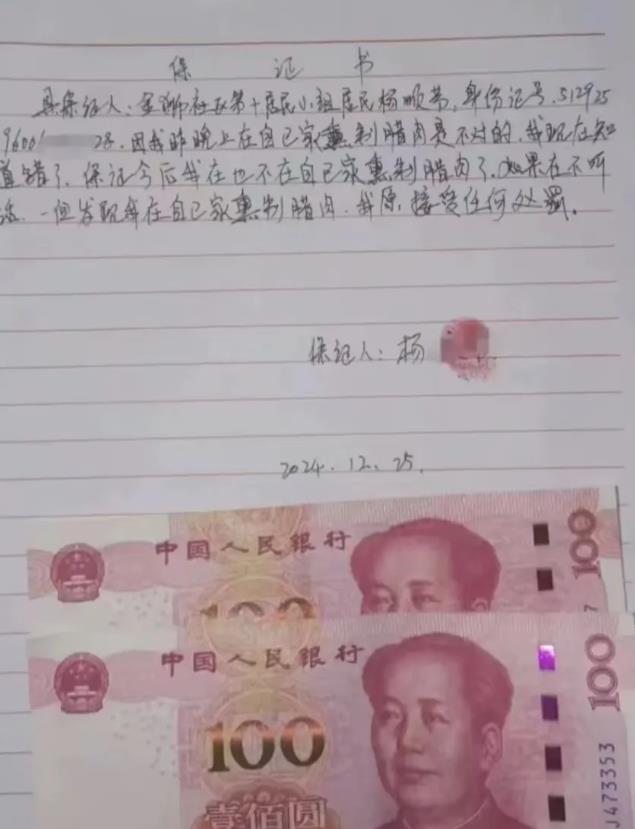 保 证 书
具保证人：金狮社区第十居民小组居民杨顺书，身份证号，512925
9600 28，因我昨晚上在自己家熏制腊肉是不对的，我现在知
道错了，保证今后我在也不在自己家熏制腊肉了，如果在不听
话，一但发现我在自己家熏制腊肉，我原接受任何处罚。
保证人：杨
2024.12.25.
中国人民银行
100
100
中国人民银行
100
100
壹佰圆
J473353